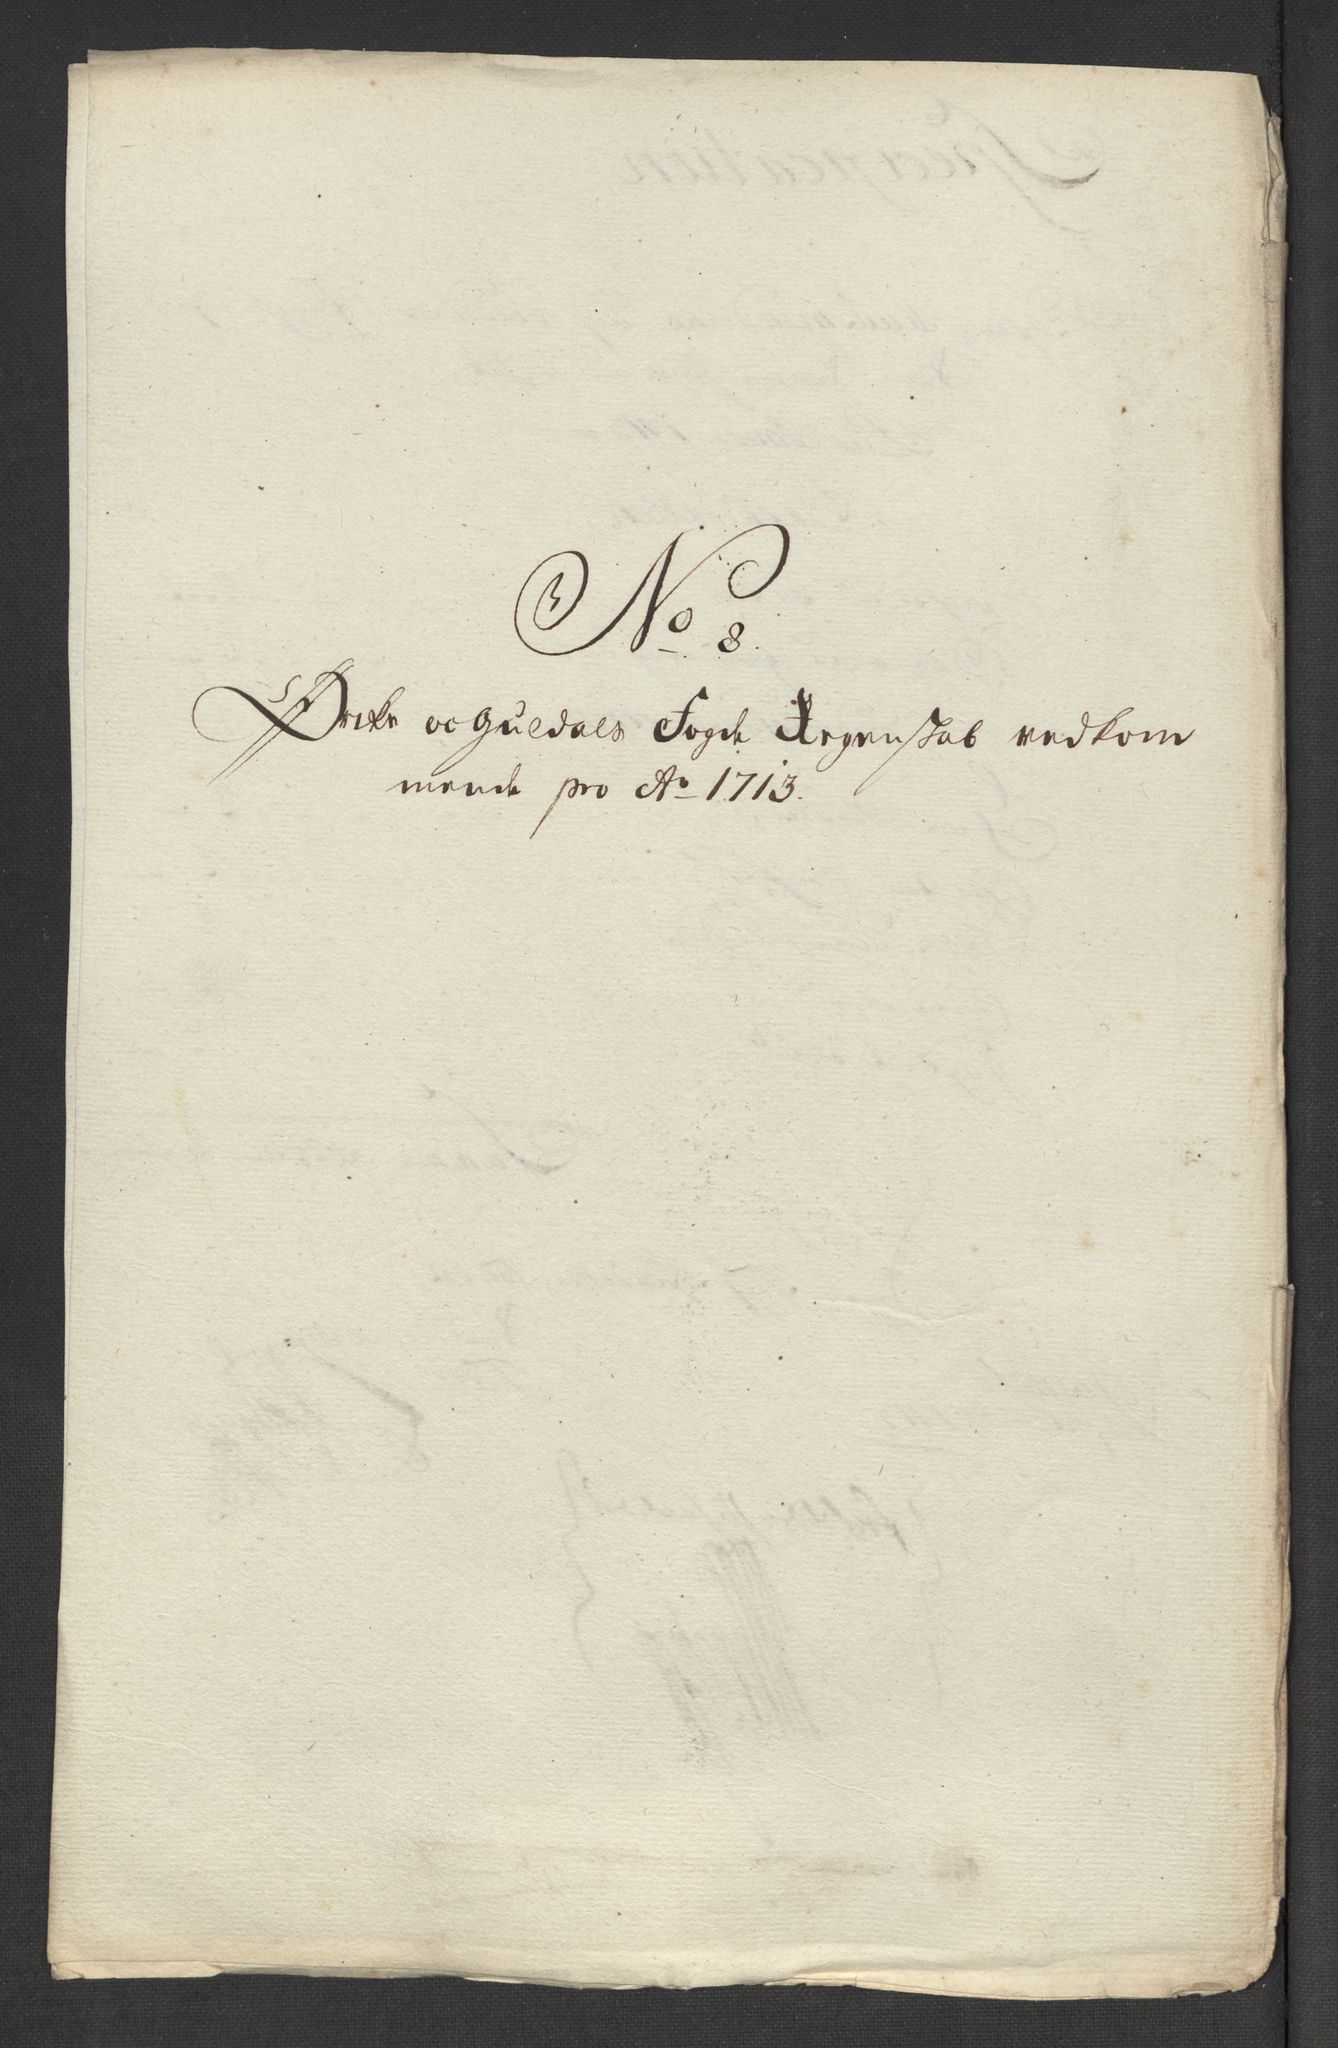 No 8.
Ørcke oc Guldals Fogde Regenskab vedkom
mende pro Ao 1713.